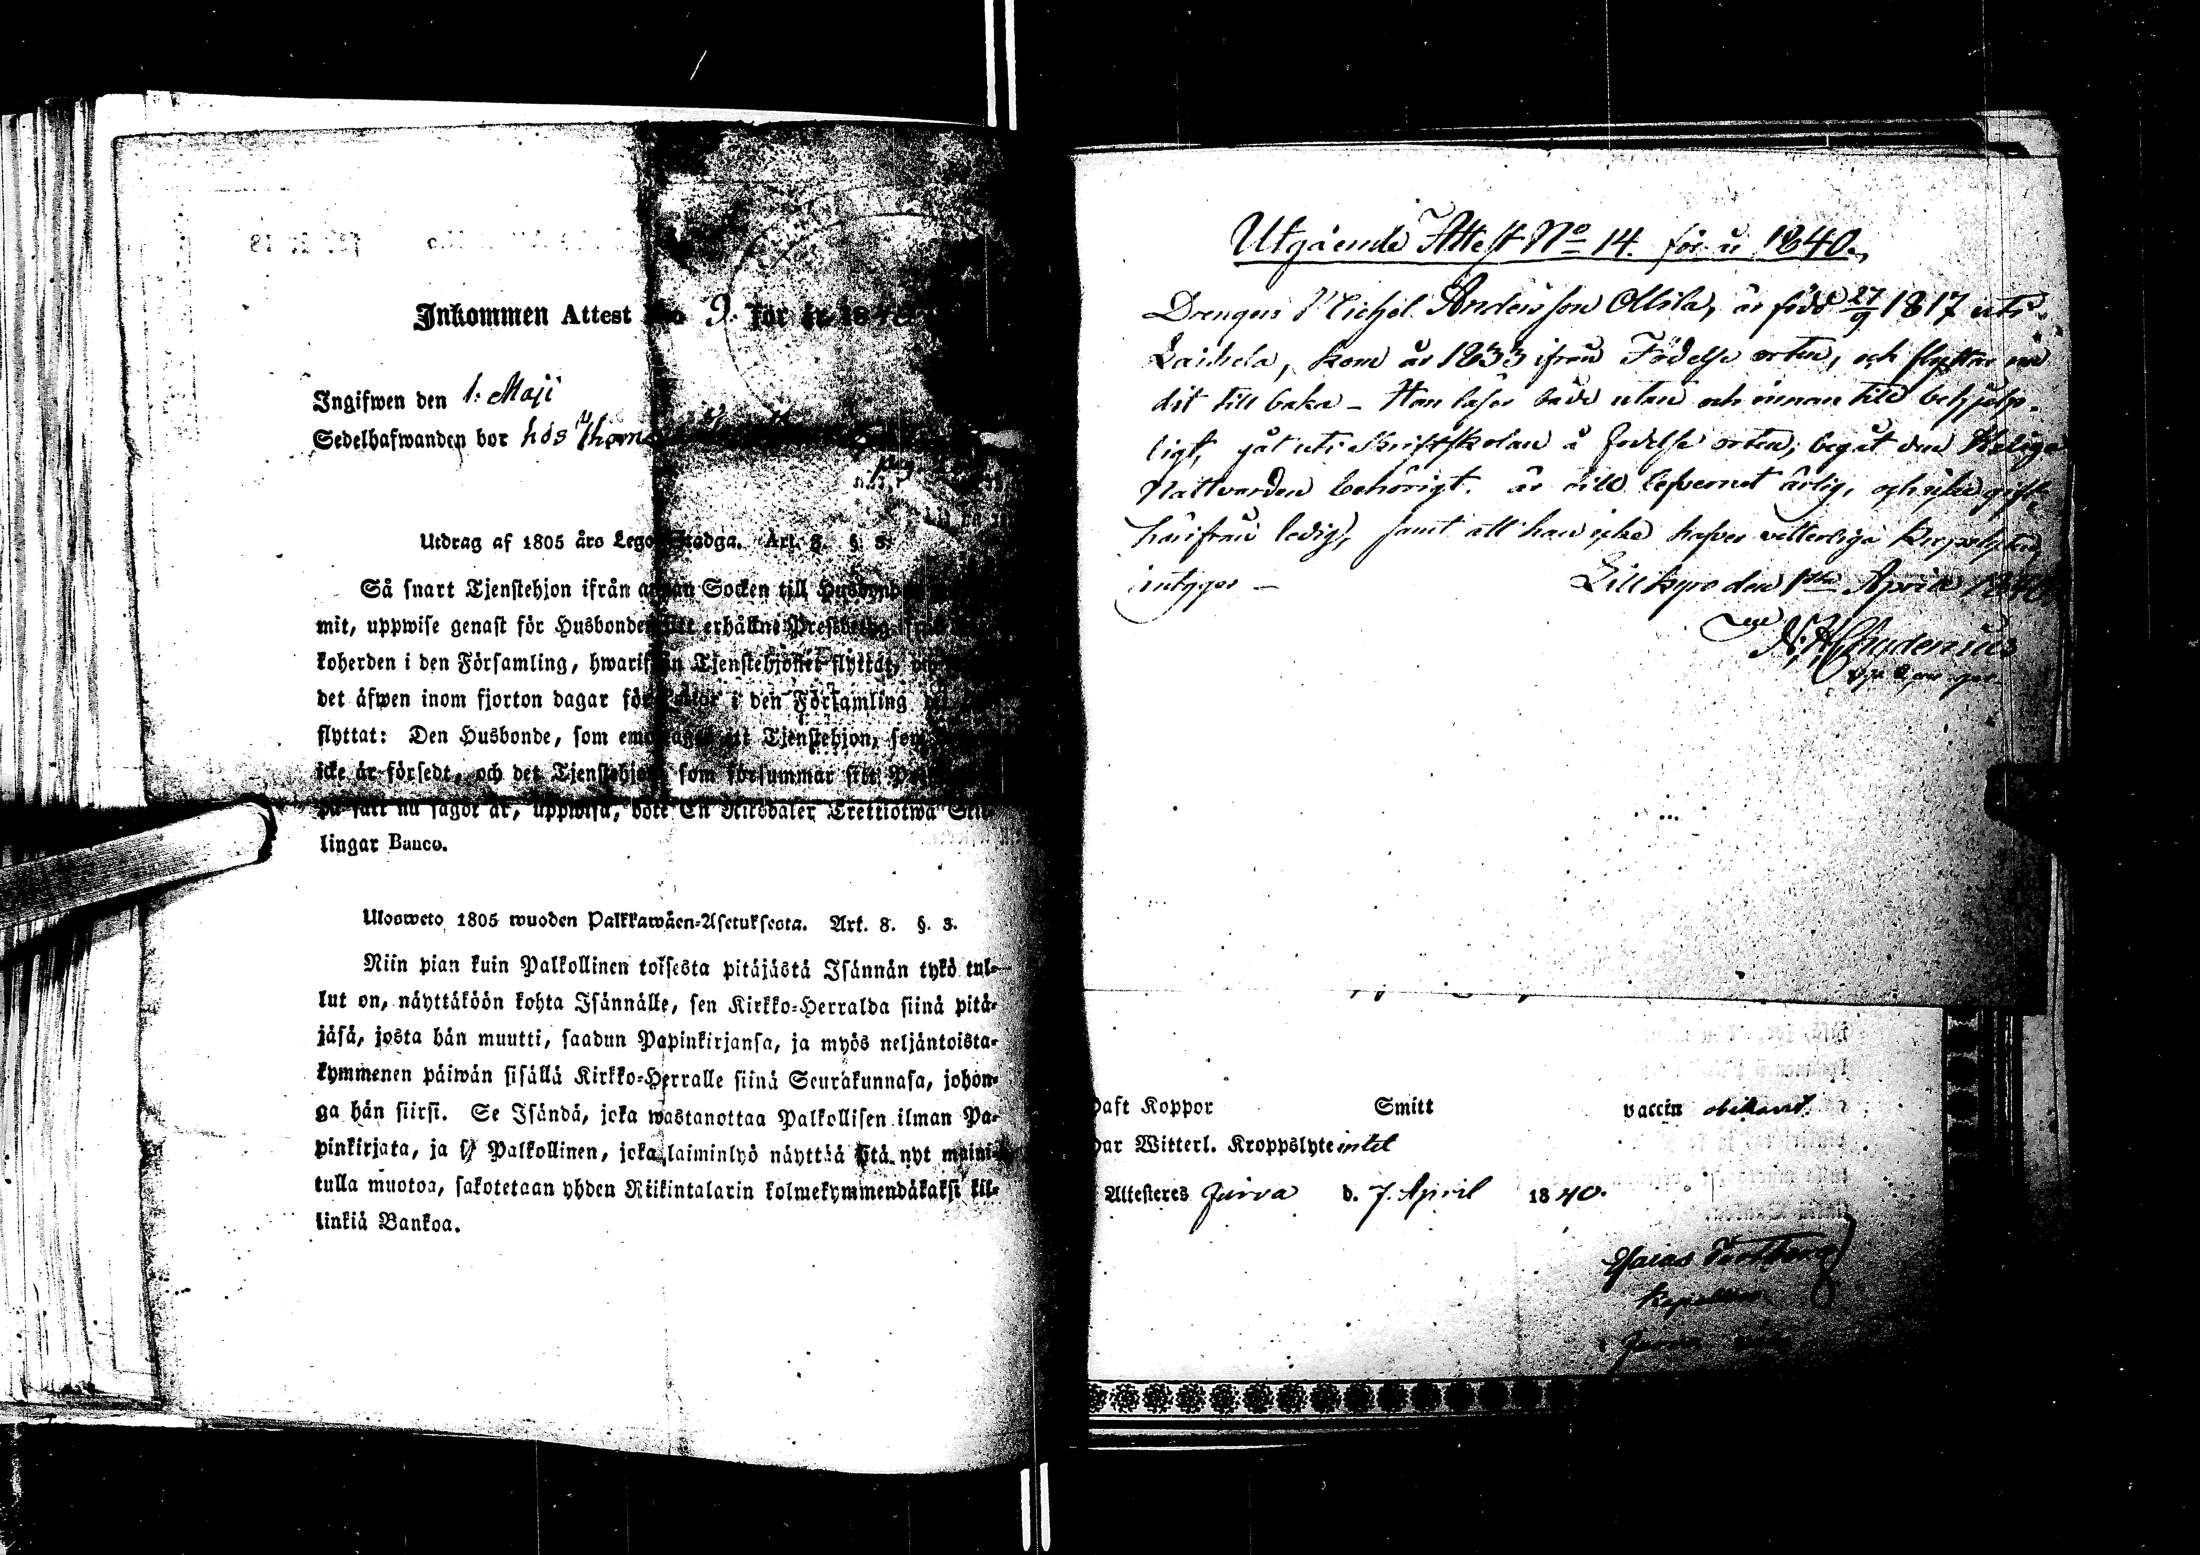 Inkommen Attest No 9. för år 1840
Ingifwen den 1. Maji
Sedelhafwanden bor hos Thom
Utdrag af 1805 års Lego-Stadga. Art. 8. §. 3.
Så snart Tjenstehjon ifrån annan Socken till Husbonde
mit, uppwise genast för Husbonden sitt erhållne Prestbetyg
koherden i den Församling, hwarifrån Tjenstehjonet flyttat,
det äfwen inom fjorton dagar för i den Församling
flyttat: Den Husbonde, som emottager ett Tjenstehjon, som
icke är försedt, och det Tjenstehjon, som försummar sitt
på sätt nu sagdt är, uppwisa, böte En Riksdaler Trettiotwå Skil-
lingar Banco.
Ulosweto 1805 wuoden Palkkawäen-Asetuksesta. Art. 8. §. 3.
Niin pian kuin Palkollinen toisesta pitäjästä Isännän tykö tul-
lut on, näyttäköön kohta Isännälle, sen Kirkko-Herralda siinä pitä-
jäsä, josta hän muutti, saadun Papinkirjansa, ja myös neljäntoista-
kymmenen päiwän sisällä Kirkko-Herralle siinä Seurakunnasa, johon-
ga hän siirsi. Se Isändä, joka wastanottaa Palkollisen ilman Pa-
pinkirjata, ja se Palkollinen, joka laiminlyö näyttää sitä nyt maini-
tulla muotoa, sakotetaan yhden Riikintalarin kolmekymmendäkaksi kil-
linkiä Bankoa.
Utgående Attest No 14. för år 1840.
Drengen Michel Andersson Ollila, är född 27/9 1817 uti
Laihela, kom år 1833 ifrån Födelse orten, och flyttar nu
dit till baka – Han läser både utan och innan till behjelp-
ligt, gåt uti Skriftskolan å födelse orten, begåt den Heliga
Nattvarden behörigt. är till lefvernet ärlig, och icke gift,
härifrån ledig, samt att han icke hafver vetterliga kroppslyten
intyger – Lillkyro den 1sta April 1840.
Chydenius
haft Koppor Smitt vaccin obekant.
har Witterl. Kroppslyte intet
Attesteres Jurva d. 7. April 1840.
Esaias
Kapellan
Jurva